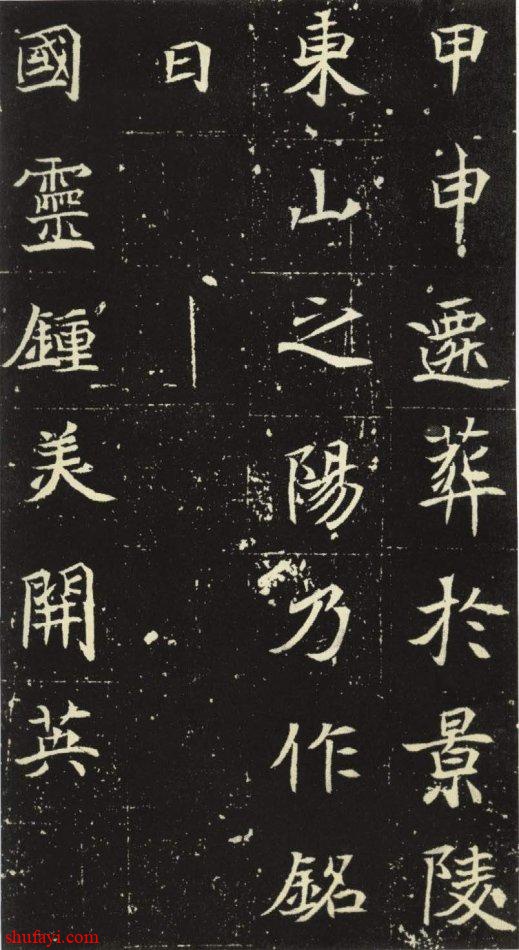 甲申遷葬於景陵
東山之陽乃作銘
曰
國靈鍾美開英
shufayi.com